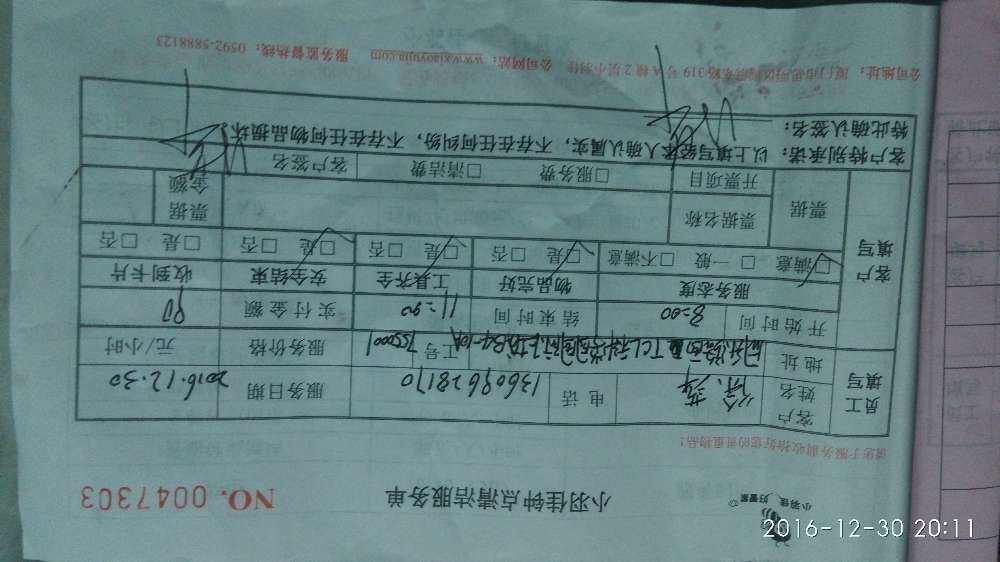 小羽佳, 好管家
小羽佳钟点清洁服务单
NO. 0047303
请您于服务前收拾好您的贵重物品!
员工填写
客户姓名
电话 13609628170
服务日期 2016.12.30
地址
工号 755001
服务价格 元/小时
客户填写
开始时间 8:00
结束时间 11:00
实付金额 90
服务态度 物品完好 工具齐全 安全结束 收到卡片
□满意 □一般 □不满意 □是 □否 □是 □否 □是 □否 □是 □否
票据 票据名称 票据金额
开票项目 □服务费 □清洁费 客户签名
客户特别承诺: 以上填写经本人确认属实, 不存在任何纠纷, 不存在任何物品损坏
特此确认签名:
公司地址: 厦门市 319号A幢2层小羽佳 公司网站: www.xiaoyujia.com 服务监督热线: 0592-5888123
2016-12-30 20:11